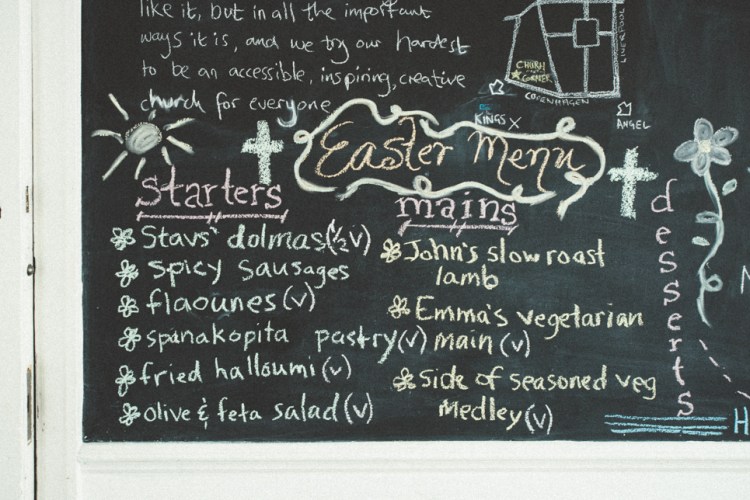 like it, but in all the important
ways it is, and we try our hardest
to be an accessible, inspiring, creative
church for everyone
LIVERPOOL
CHURH
CORNER
COPENHAGEN
KINGS X
ANGEL
Easter Menu
Starters
Stavs' dolmas (½v)
spicy sausages
flaounes (v)
spanakopita pastry (v)
fried halloumi (v)
olive & feta salad (v)
mains
John's slow roast
lamb
Emma's vegetarian
main (v)
side of seasoned veg
medley (v)
desserts